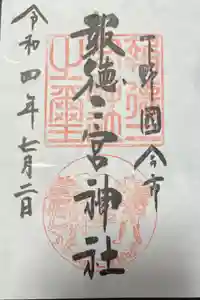 下野國今市
報徳二宮神社
令和四年七月二日